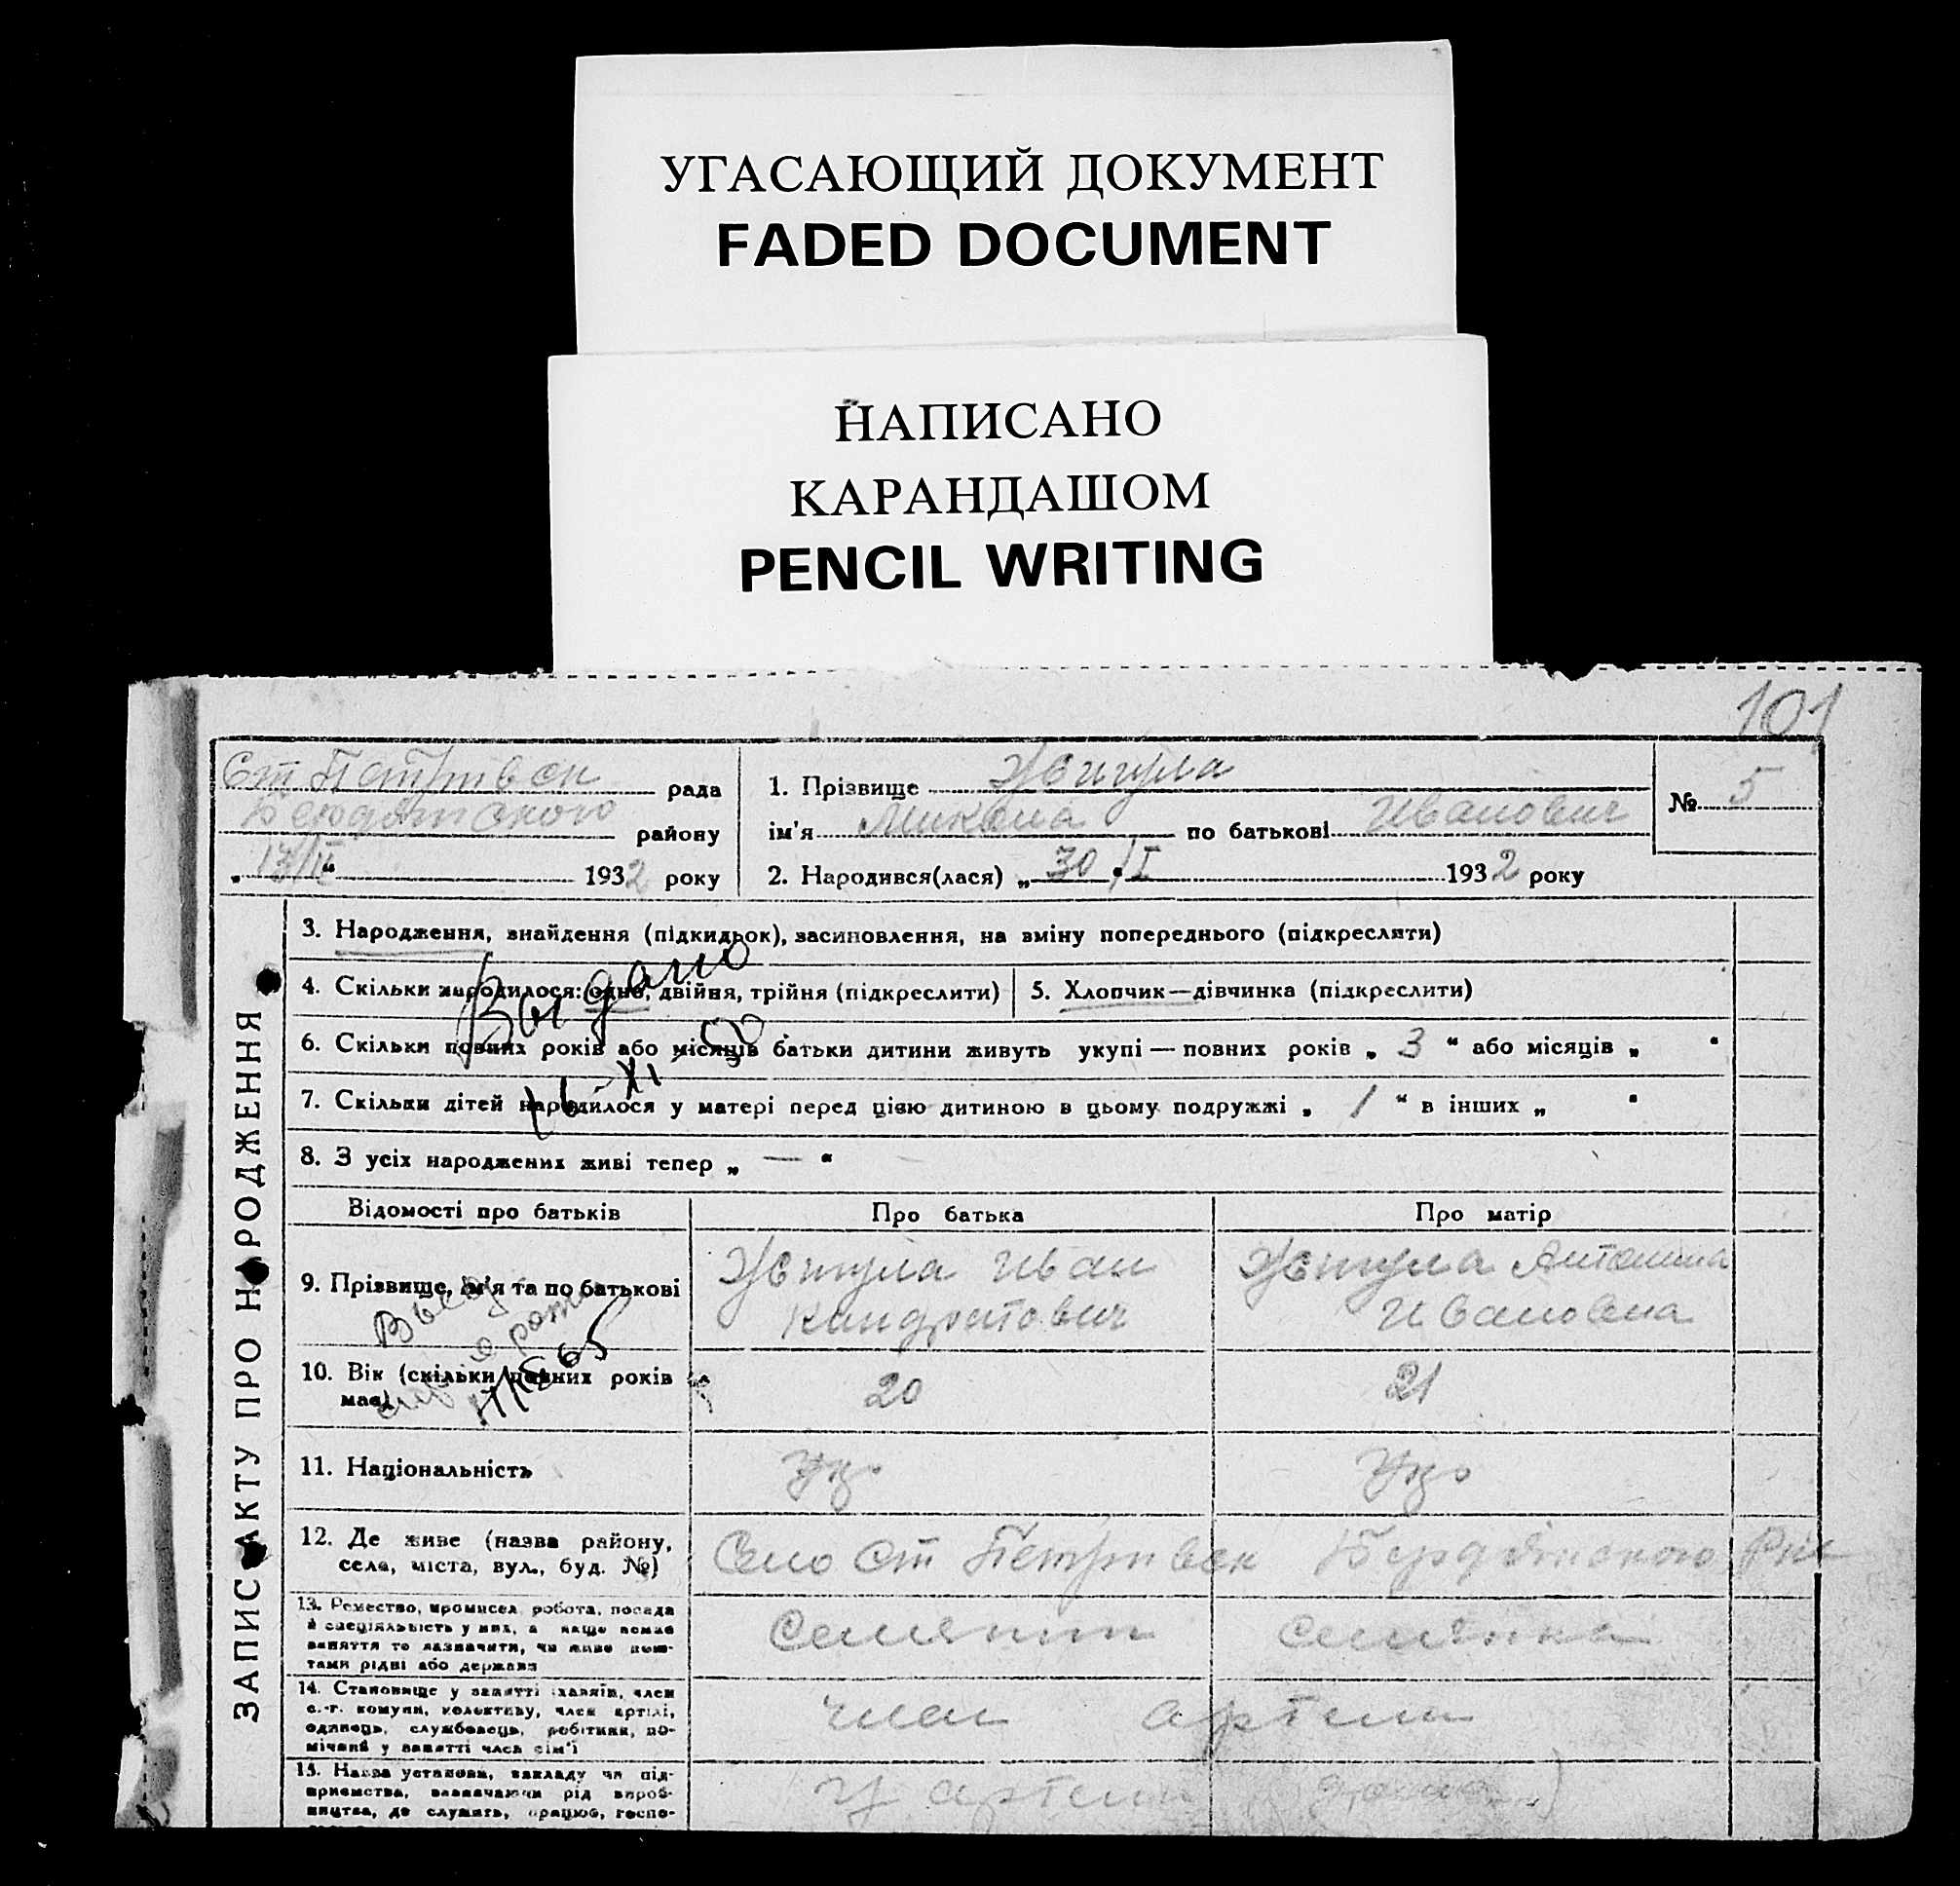 УГАСАЮЩИЙ ДОКУМЕНТ
FADED DOCUMENT
НАПИСАНО
КАРАНДАШОМ
PENCIL WRITING
101
Ст Петрівск рада
району
" 13/II " 1932 року
1. Прізвище
ім'я Микола по батькові Иванович
№ 5
2. Народився(лася) „ 30 " I 1932 року
ЗАПИС АКТУ ПРО НАРОДЖЕННЯ
3. Народження, знайдення (підкидьок), засиновлення, на вміну попереднього (підкреслити)
4. Скільки народилося: одно, двійня, трійня (підкреслити)
5. Хлопчик—дівчинка (підкреслити)
Выдано
6. Скільки повних років або місяців батьки дитини живуть укупі — повних років „ 3 " або місяців „ "
7. Скільки дітей народилося у матері перед цією дитиною в цьому подружжі „ 1 " в інших „ "
8. З усіх народжених живі тепер „ — "
Відомості про батьків
Про батька
Про матір
9. Прізвище, ім'я та по батькові
Иван
Кондратович
Антонина
Ивановна
10. Вік (скільки повних років
має)
20
21
11. Національність
Укр
Укр
12. Де живе (назва району,
село, міста, вул., буд. №)
Село Ст Петрівск Бердянского
13. Ремество, промисел, робота, посада
й спеціяльність у них, а якщо немає
заняття то зазначити, чи живе кош-
тами рідні або держави
Селянин
Селянка
14. Становище у занятті (хазяїн, член
с.-г. комуни, колективу, член артілі,
одинець, службовець, робітник, по-
мічний у занятті член сім'ї
член артели
15. Назва установи, закладу чи під-
приємства, зазначаючи рід вироб-
ництва, де служить, працює, госпо-
У артели